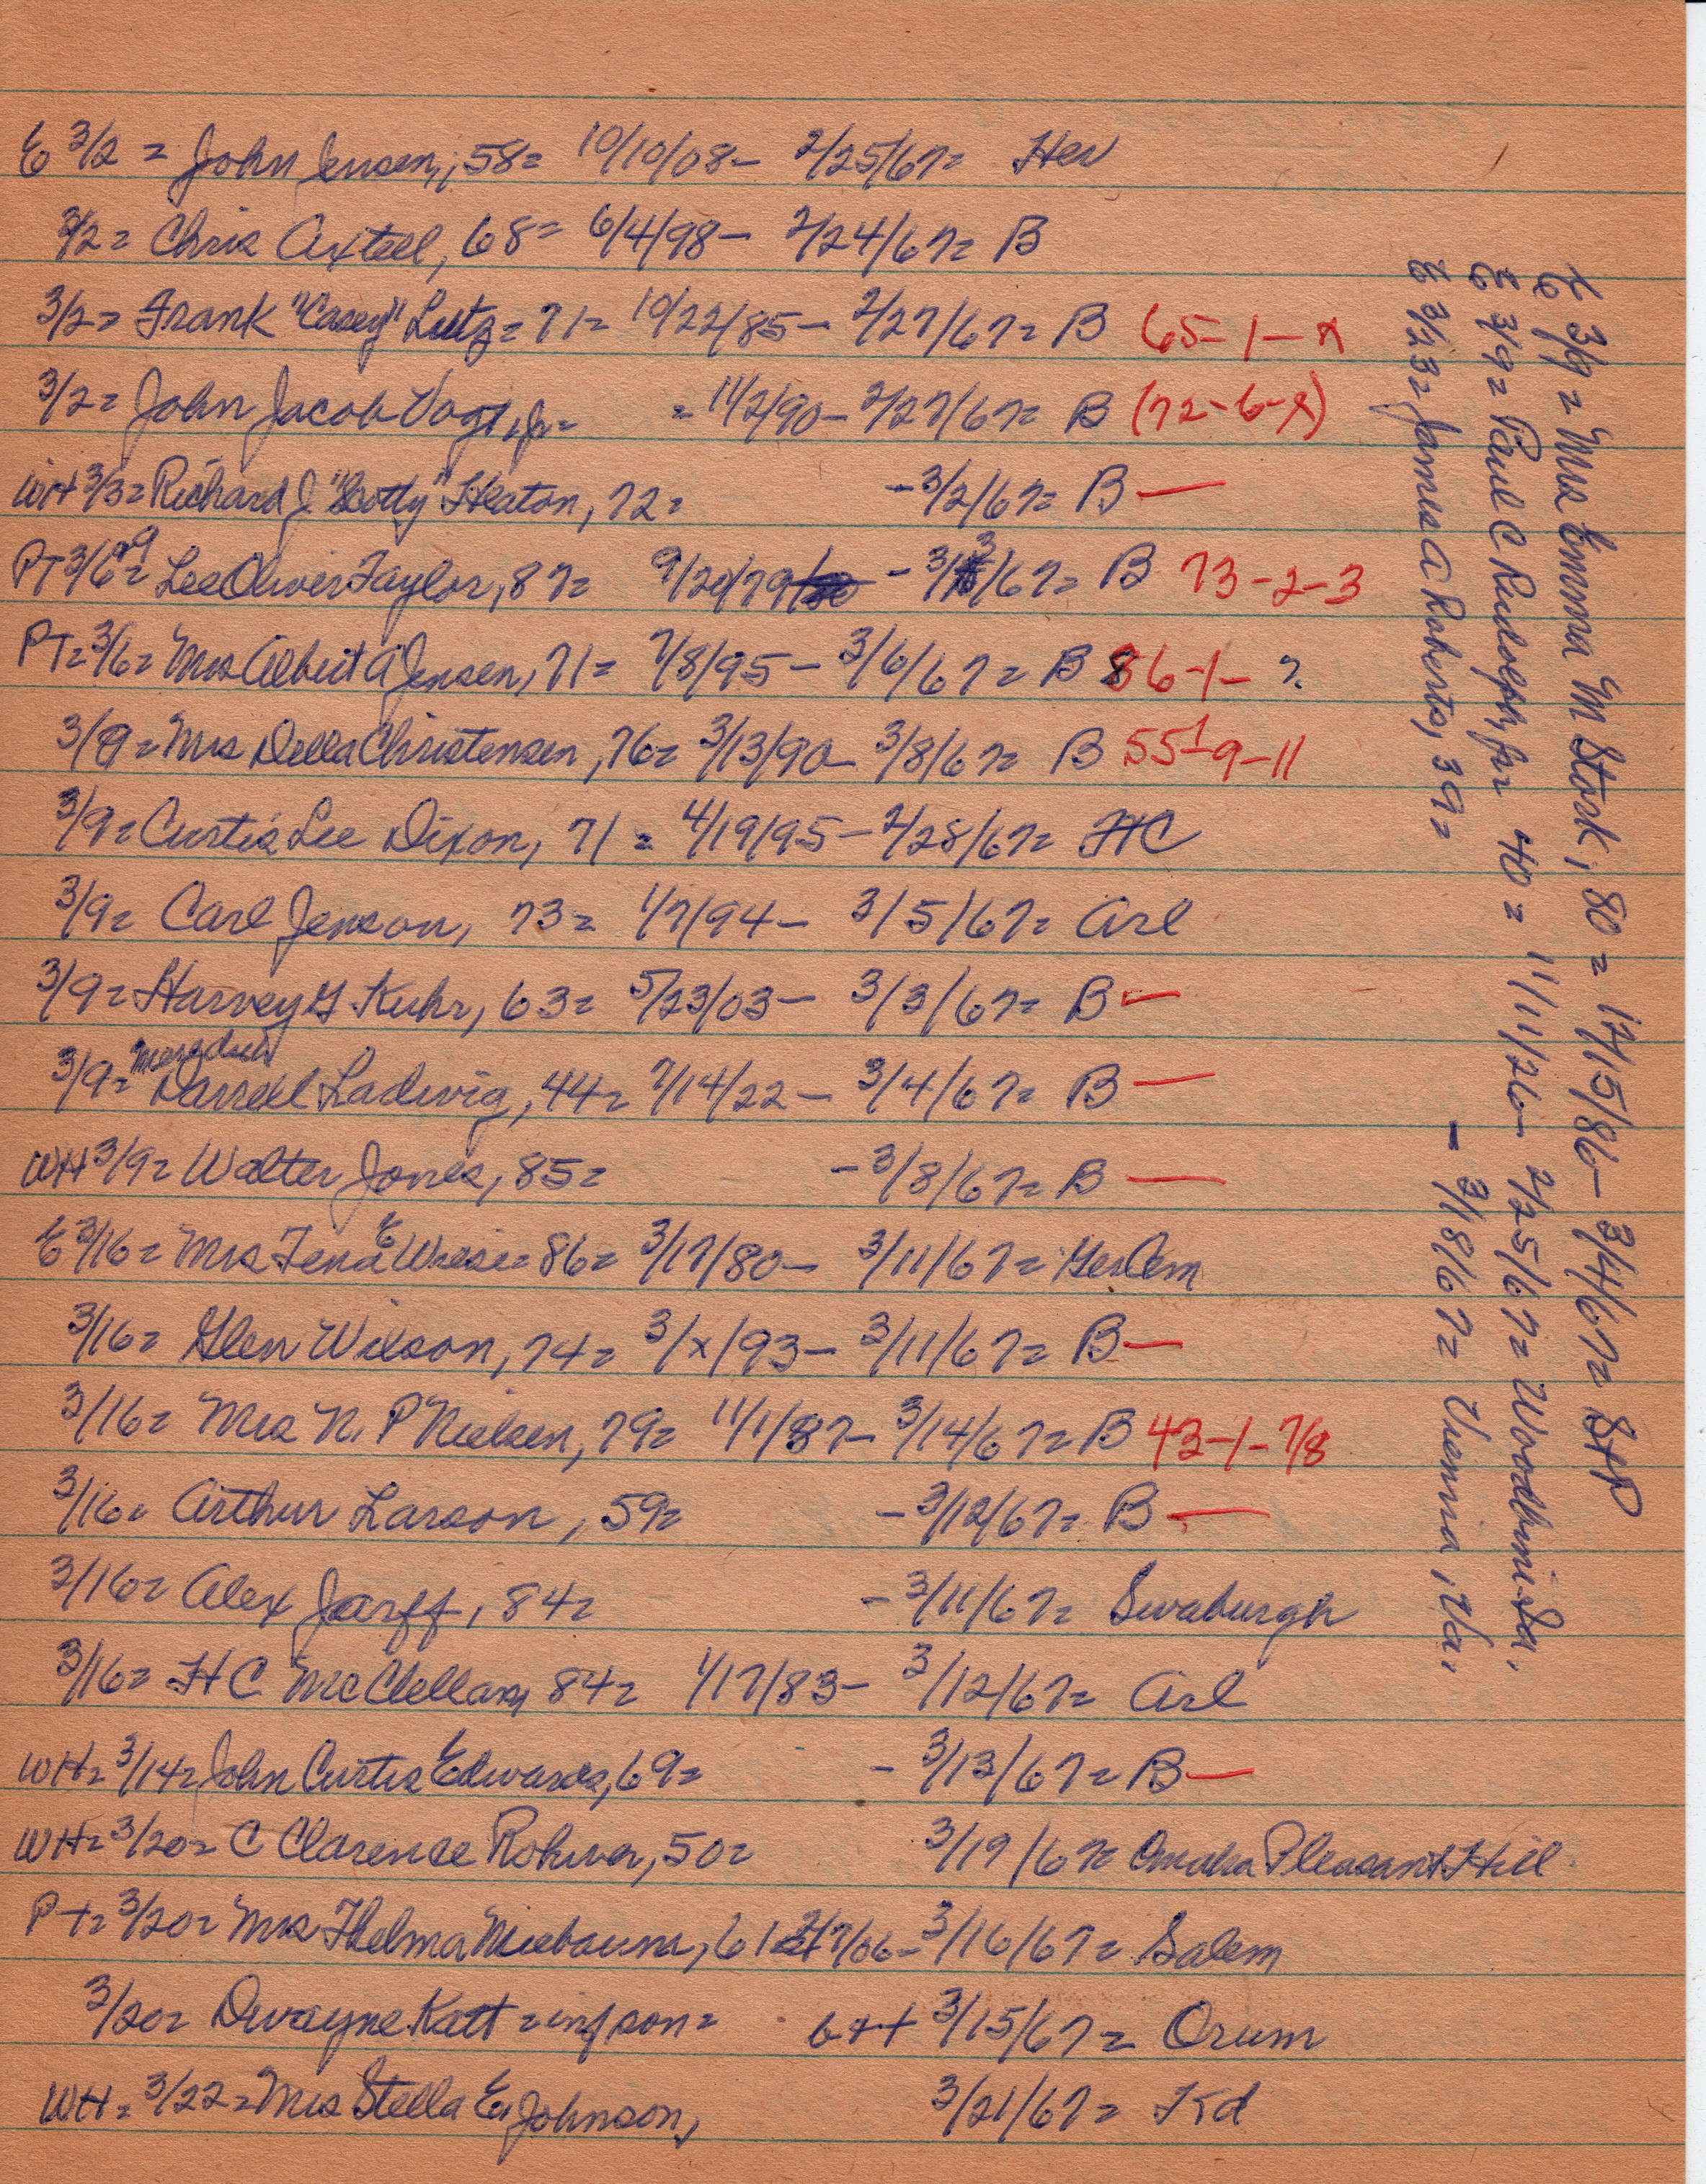 E 3/2 = John Jensen, 58= 10/10/08- 2/25/67= Her
3/2= Chris Axtell, 68= 6/4/98- 2/24/67= B
3/2= Frank "Casey" Lutz= 71= 10/22/85- 2/27/67= B 65-1-x
3/2= John Jacob Vogt, Jr= = 11/2/90- 2/27/67= B (72-6-x)
WH 3/3= Richard J "Scotty" Heaton, 72= -3/2/67= B —
PT 3/6 &9= Lee Oliver Taylor, 87= 9/20/79 - 3/3/67= B 73-2-3
PT= 3/6= Mrs Albert A Jensen, 71= 7/8/95- 3/6/67= B 86-1- ?
3/9= Mrs Della Christensen, 76= 3/13/90- 3/8/67= B 55-9-11
3/9= Curtis Lee Dixon, 71= 4/19/95- 2/28/67= HC
3/9= Carl Jenson, 73= 1/7/94- 3/5/67= Arl
3/9= Harvey G Kuhr, 63= 5/23/03- 3/3/67= B —
3/9= Meredith Darrell Ladwig, 44= 7/14/22- 3/4/67= B —
WH 3/9= Walter Jones, 85= -3/8/67= B —
E 3/16= Mrs Tena E Wiese= 86= 3/17/80- 3/11/67= Ger Cem
3/16= Glen Wilson, 74= 3/x/93- 3/11/67= B —
3/16= Mrs N. P Nielsen, 79= 11/1/87- 3/14/67= B 43-1-7/8
3/16= Arthur Larson, 59= -3/12/67= B —
3/16= Alex Jarff, 84= -3/11/67= Swaburgh
3/16= H C McClellan, 84= 1/17/83- 3/12/67= Arl
WH= 3/14= John Curtis Edwards, 69= - 3/13/67= B —
WH= 3/20= C Clarence Rohwer, 50= 3/19/67= Omaha Pleasant Hill
PT= 3/20= Mrs Thelma Niebaum, 61= 2/7/06- 3/16/67= Salem
3/20= Dwayne Katt = inf son= b++ 3/15/67= Orum
WH= 3/22= Mrs Stella E. Johnson, 3/21/67= Kd
E 3/9= Mrs Emma M Stork, 80= 12/15/86- 3/4/67= StP
E 3/9= Paul C Rudolph, Jr 40= 11/11/26- 2/25/67= Woodbine Ia.
E 3/23= James A Roberts, 39= - 3/18/67= Vienna, Va.